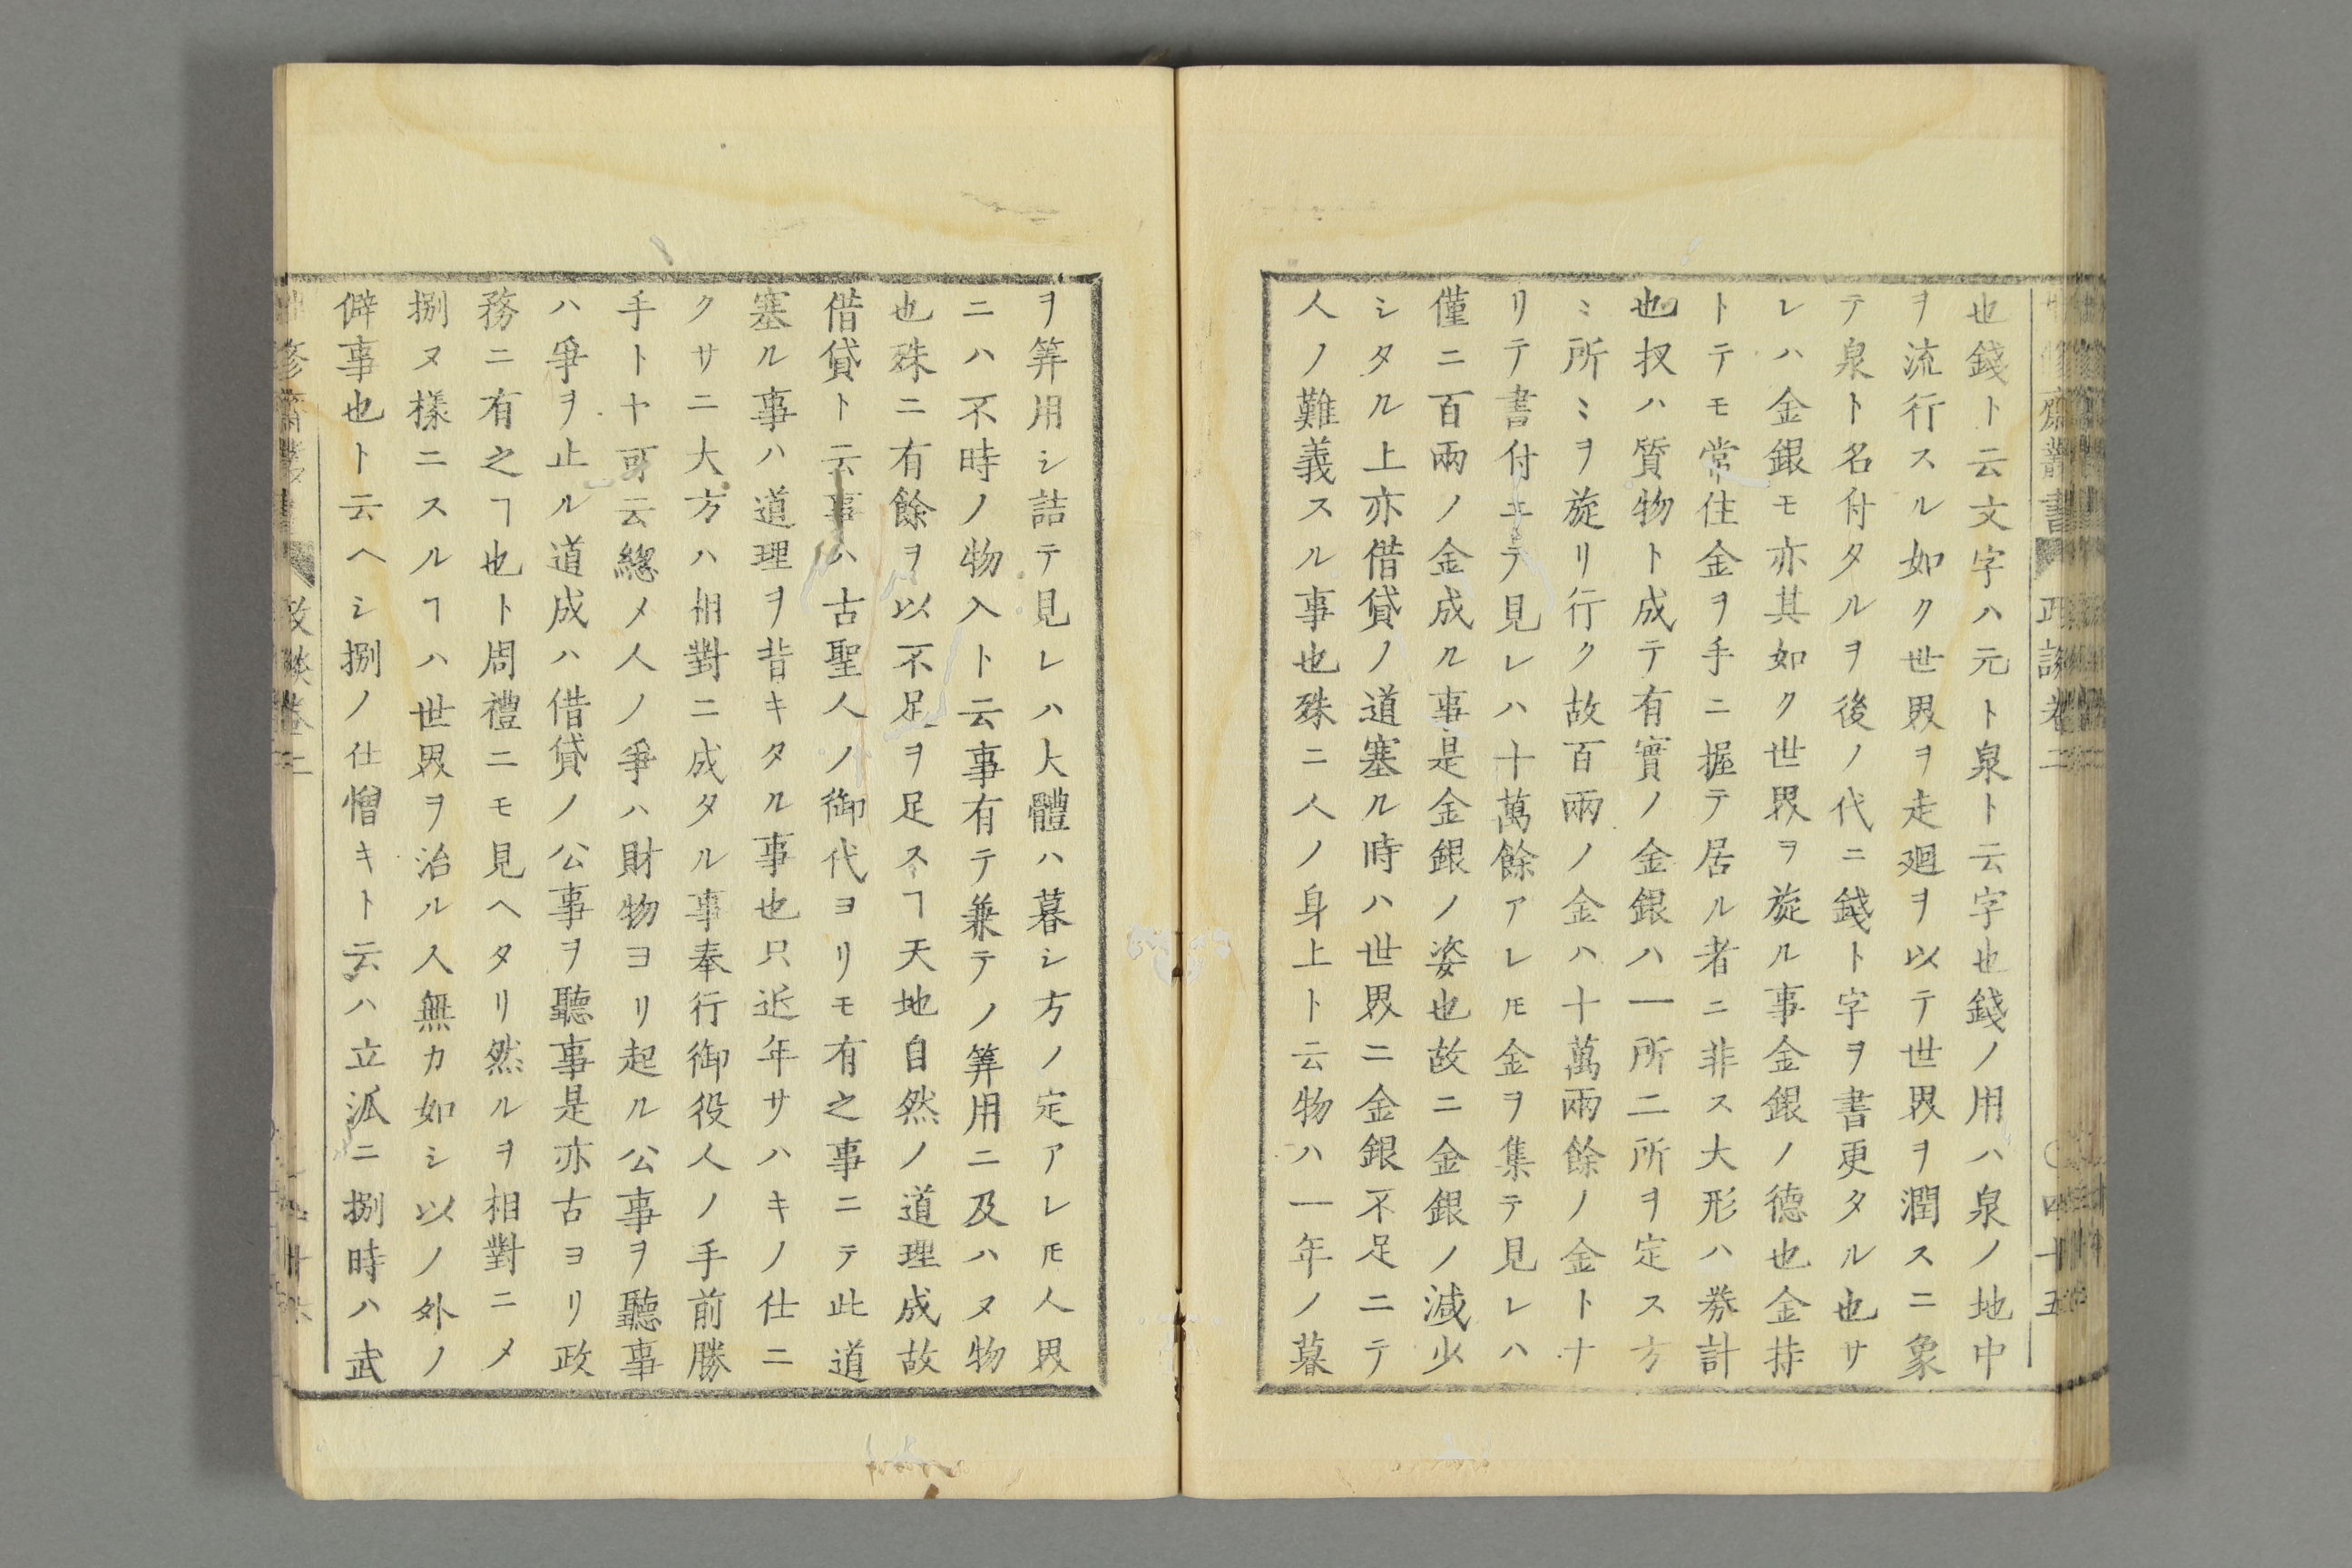 也錢ト云文字ハ元ト泉ト云字也錢ノ用ハ泉ノ地中
ヲ流行スル如ク世界ヲ走廻ヲ以テ世界ヲ潤スニ象
テ泉ト名付タルヲ後ノ代ニ錢ト字ヲ書更タル也サ
レハ金銀モ亦其如ク世界ヲ旋ル事金銀ノ德也金持
トテモ常住金ヲ手ニ握テ居ル者ニ非ス大形ハ券計
也扠ハ質物ト成テ有實ノ金銀ハ一所二所ヲ定ス方
ミ所ミヲ旋リ行ク故百兩ノ金ハ十萬兩餘ノ金トナ
リテ書付ニテ見レハ十萬餘アレ𪜈金ヲ集テ見レハ
僅ニ百兩ノ金成ル事是金銀ノ姿也故ニ金銀ノ減少
シタル上亦借貸ノ道塞ル時ハ世界ニ金銀不足ニテ
人ノ難義スル事也殊ニ人ノ身上ト云物ハ一年ノ暮
ヲ筭用シ詰テ見レハ大體ハ暮シ方ノ定アレ𪜈人界
ニハ不時ノ物入ト云事有テ兼テノ筭用ニ及ハヌ物
也殊ニ有餘ヲ以不足ヲ足スヿ天地自然ノ道理成故
借貸ト云事ハ古聖人ノ御代ヨリモ有之事ニテ此道
塞ル事ハ道理ヲ背キタル事也只近年サハキノ仕ニ
クサニ大方ハ相對ニ成タル事奉行御役人ノ手前勝
手トヤ可云緫メ人ノ爭ハ財物ヨリ起ル公事ヲ聽事
ハ爭ヲ止ル道成ハ借貸ノ公事ヲ聽事是亦古ヨリ政
務ニ有之ヿ也ト周禮ニモ見ヘタリ然ルヲ相對ニメ
捌ヌ樣ニスルヿハ世界ヲ治ル人無カ如シ以ノ外ノ
僻事也ト云ヘシ捌ノ仕憎キト云ハ立派ニ捌時ハ武